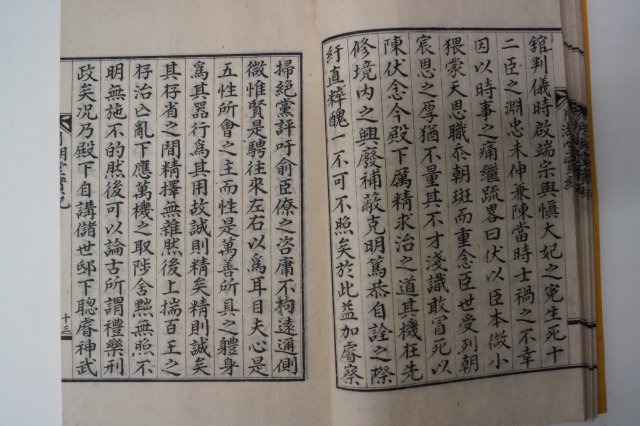 舘判儀時啟端宗與愼大妃之寃生死十
二臣之淵忠未伸兼陳當時士禍之不幸
因以時事之痛繼疏畧曰伏以臣本微小
猥蒙天恩職忝朝班而重念臣世受列朝
宸恩之厚猶不量其不才淺識敢冒死以
陳伏念今殿下厲精求治之道其機在先
修境内之興廢補敲克明篤恭自詮之際
紆直粹醜一不可不照矣於此益加睿察
掃絕黨評吁俞臣僚之咨庸不拘遠邇側
微惟賢是騁往來左右以爲耳目夫心是
五性所會之主而性是萬善所具之軆身
爲其器行爲其用故誠則精矣精則誠矣
其存省之間精擇無雜然後上揣百王之
存治亡亂下應萬機之取陟舍黜無照不
明無施不的然後可以論古所謂禮樂刑
政矣况乃殿下自講儲世邸下聰睿神武
十三